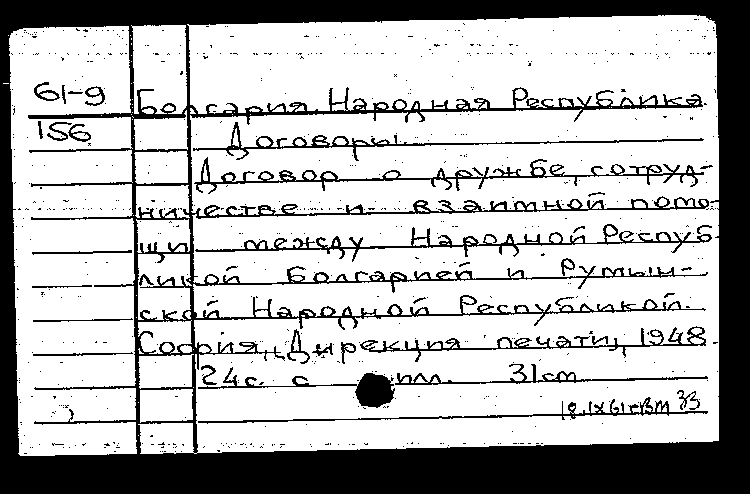 61-9 Болгария. Народная Республика
156 Договоры.
Договор о дружбе, сотруд-
ничестве и взаимной помо-
щи между Народной Респуб-
ликой Болгарией и Румын-
ской Народной Республикой.
София, "Дирекция печати", 1948.
24с. с илл. 31cm
18.IX61г